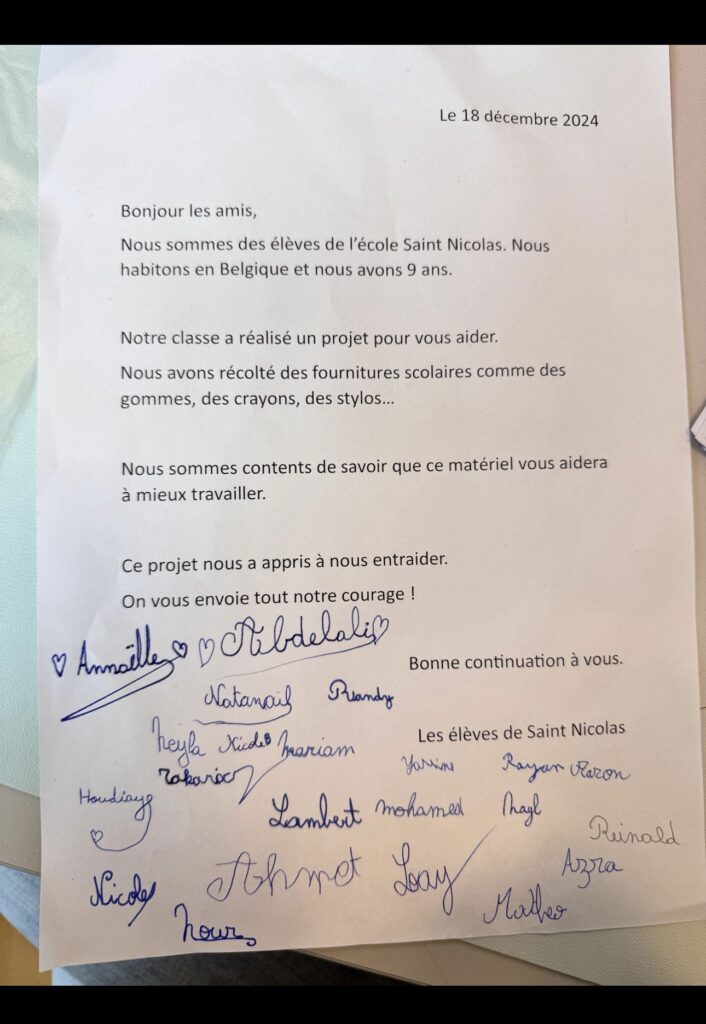 Le 18 décembre 2024
Bonjour les amis,
Nous sommes des élèves de l'école Saint Nicolas. Nous
habitons en Belgique et nous avons 9 ans.
Notre classe a réalisé un projet pour vous aider.
Nous avons récolté des fournitures scolaires comme des
gommes, des crayons, des stylos...
Nous sommes contents de savoir que ce matériel vous aidera
à mieux travailler.
Ce projet nous a appris à nous entraider.
On vous envoie tout notre courage !
Annaëlle Abdelali
Bonne continuation à vous.
Natanaïl
Les élèves de Saint Nicolas
mariam
Rayan Aaron
Lambert mohamed
Reinald
Ahmet Loay Azra
Matheo
nour